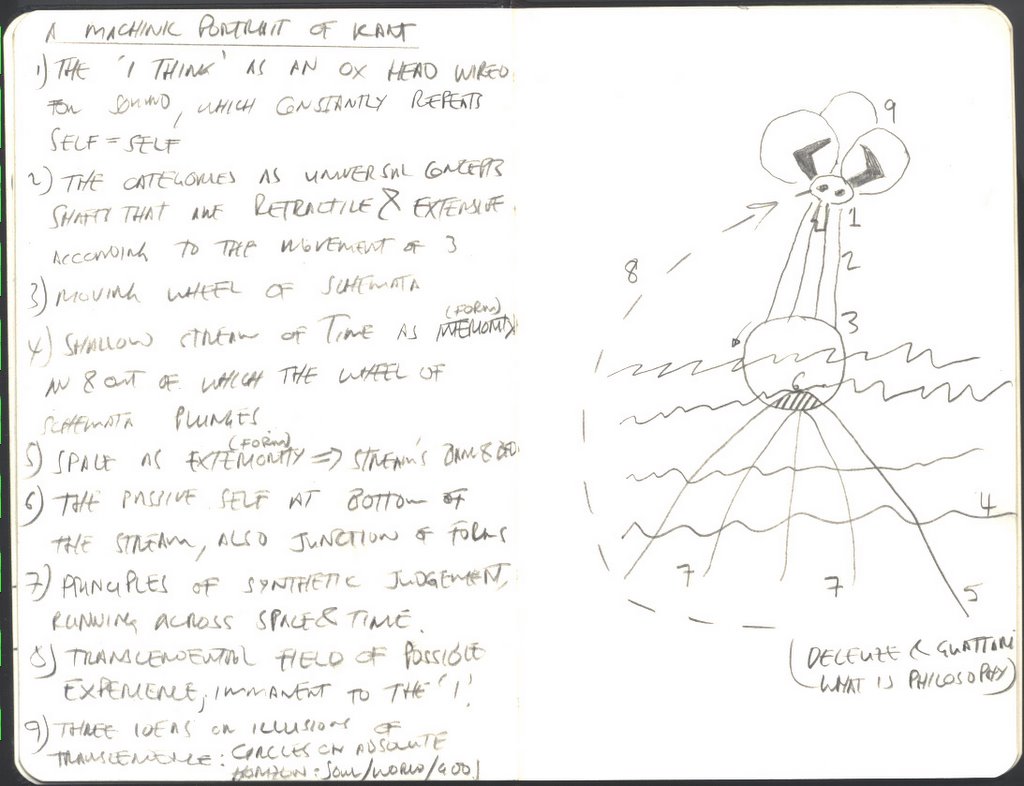 A MACHINIC PORTRAIT OF KANT
1) THE 'I THINK' AS AN OX HEAD WIRED
FOR SOUND, WHICH CONSTANTLY REPEATS
SELF = SELF
2) THE CATEGORIES AS UNIVERSAL CONCEPTS
SHAFTS THAT ARE RETRACTILE & EXTENSIVE
ACCORDING TO THE MOVEMENT OF 3
3) MOVING WHEEL OF SCHEMATA
(FORM)
4) SHALLOW STREAM OF TIME AS INTERIORITY
IN & OUT OF WHICH THE WHEEL OF
SCHEMATA PLUNGES
(FORM)
5) SPACE AS EXTERIORITY => STREAM'S BANK & BED
6) THE PASSIVE SELF AT BOTTOM OF
THE STREAM, ALSO JUNCTION OF FORMS
7) PRINCIPLES OF SYNTHETIC JUDGEMENT,
RUNNING ACROSS SPACE & TIME.
8) TRANSCENDENTAL FIELD OF POSSIBLE
EXPERIENCE, IMMANENT TO THE 'I'.
9) THREE IDEAS OR ILLUSIONS OF
TRANSCENDENCE: CIRCLES ON ABSOLUTE
HORIZON: SOUL/WORLD/GOD
9
1
2
8
3
6
4
7
7
5
(DELEUZE & GUATTARI
WHAT IS PHILOSOPHY)